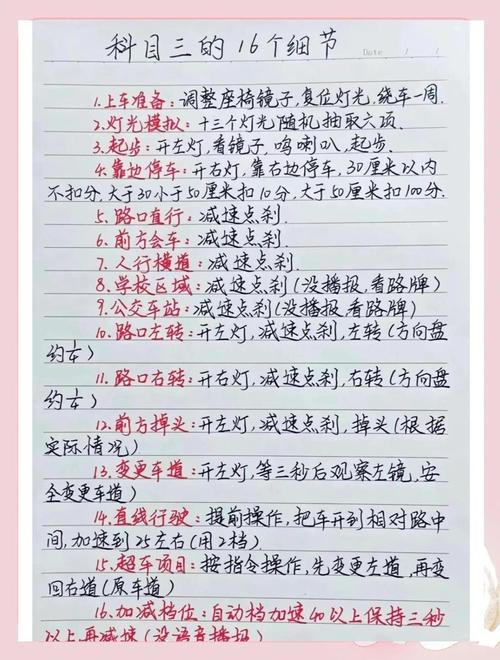 科目三的16个细节
Date / /
1.上车准备:调整座椅镜子,复位灯光,绕车一周.
2.灯光模拟:十三个灯光随机抽取六项.
3.起步:开左灯,看镜子,鸣喇叭,起步.
4.靠边停车:开右灯,靠右边停车,30厘米以内
不扣分,大于30小于50厘米扣10分,大于50厘米扣100分.
5.路口直行:减速点刹.
6.前方会车:减速点刹.
7.人行横道:减速点刹.
8.学校区域:减速点刹(没播报,看路牌)
9.公交车站:减速点刹(没播报,看路牌)
10.路口左转:开左灯,减速点刹,左转(方向盘
约1/4)
11.路口右转:开右灯,减速点刹,右转(方向盘
约1/4)
12.前方掉头:开左灯,减速点刹,掉头(根据
实际情况)
13.变更车道:开左灯,等三秒后观察左镜,安
全变更车道)
14.直线行驶:提前操作,把车开到相对路中
间,加速到25左右(用2档)
15.超车项目:按指令操作,先变更左道,再变
回右道(原车道)
16.加减档位:自动档加速40以上保持三秒
以上再减速(没语音播报)